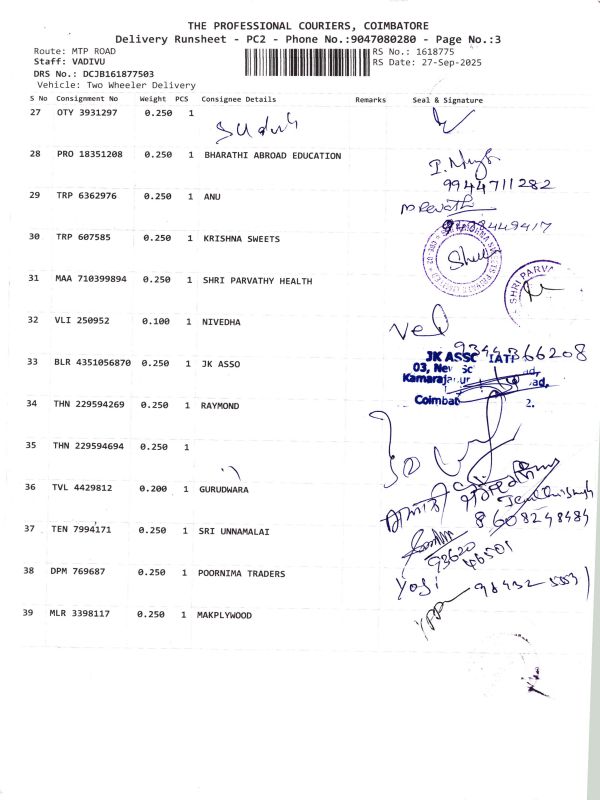 THE PROFESSIONAL COURIERS, COIMBATORE
Delivery Runsheet - PC2 - Phone No.:9047080280 - Page No.:3
Route: MTP ROAD RS No.: 1618775
Staff: VADIVU RS Date: 27-Sep-2025
DRS No.: DCJB161877503
Vehicle: Two Wheeler Delivery
S No Consignment No Weight PCS Consignee Details Remarks Seal & Signature
27 OTY 3931297 0.250 1
28 PRO 18351208 0.250 1 BHARATHI ABROAD EDUCATION
9944711282
29 TRP 6362976 0.250 1 ANU
M Revathi
30 TRP 607585 0.250 1 KRISHNA SWEETS
31 MAA 710399894 0.250 1 SHRI PARVATHY HEALTH
SHRI PARVA
32 VLI 250952 0.100 1 NIVEDHA
Ved
9344366208
33 BLR 4351056870 0.250 1 JK ASSO
JK ASSOCIATE
03, New
Kamarajapur
Coimbat 2.
34 THN 229594269 0.250 1 RAYMOND
35 THN 229594694 0.250 1
36 TVL 4429812 0.200 1 GURUDWARA
8608248484
37 TEN 7994171 0.250 1 SRI UNNAMALAI
93620
46501
38 DPM 769687 0.250 1 POORNIMA TRADERS
Yogi
39 MLR 3398117 0.250 1 MAKPLYWOOD